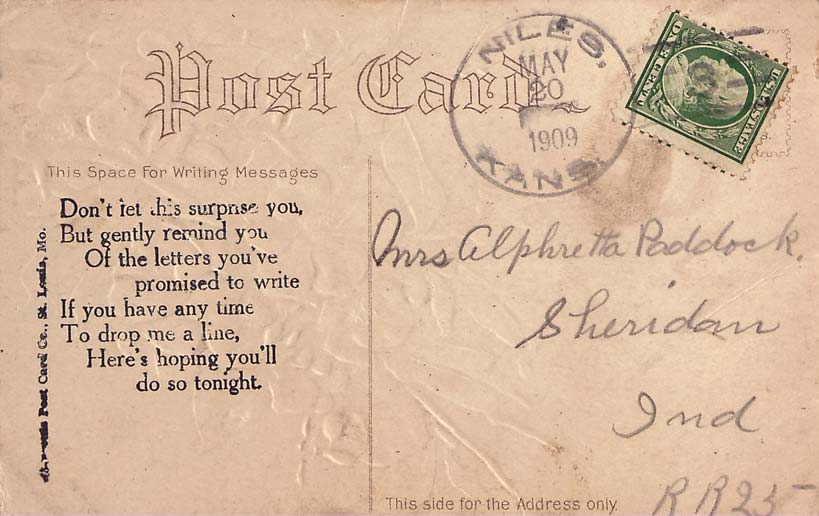 Post Card
NILES,
MAY
20
1909
KANS.
U.S. POSTAGE
This Space For Writing Messages
Don't let this surprise you,
But gently remind you
Of the letters you've
promised to write
If you have any time
To drop me a line,
Here's hoping you'll
do so tonight.
Post Card Co., St. Louis, Mo.
Mrs Alphretta Paddock.
Sheridan
Ind
RR25
This side for the Address only.